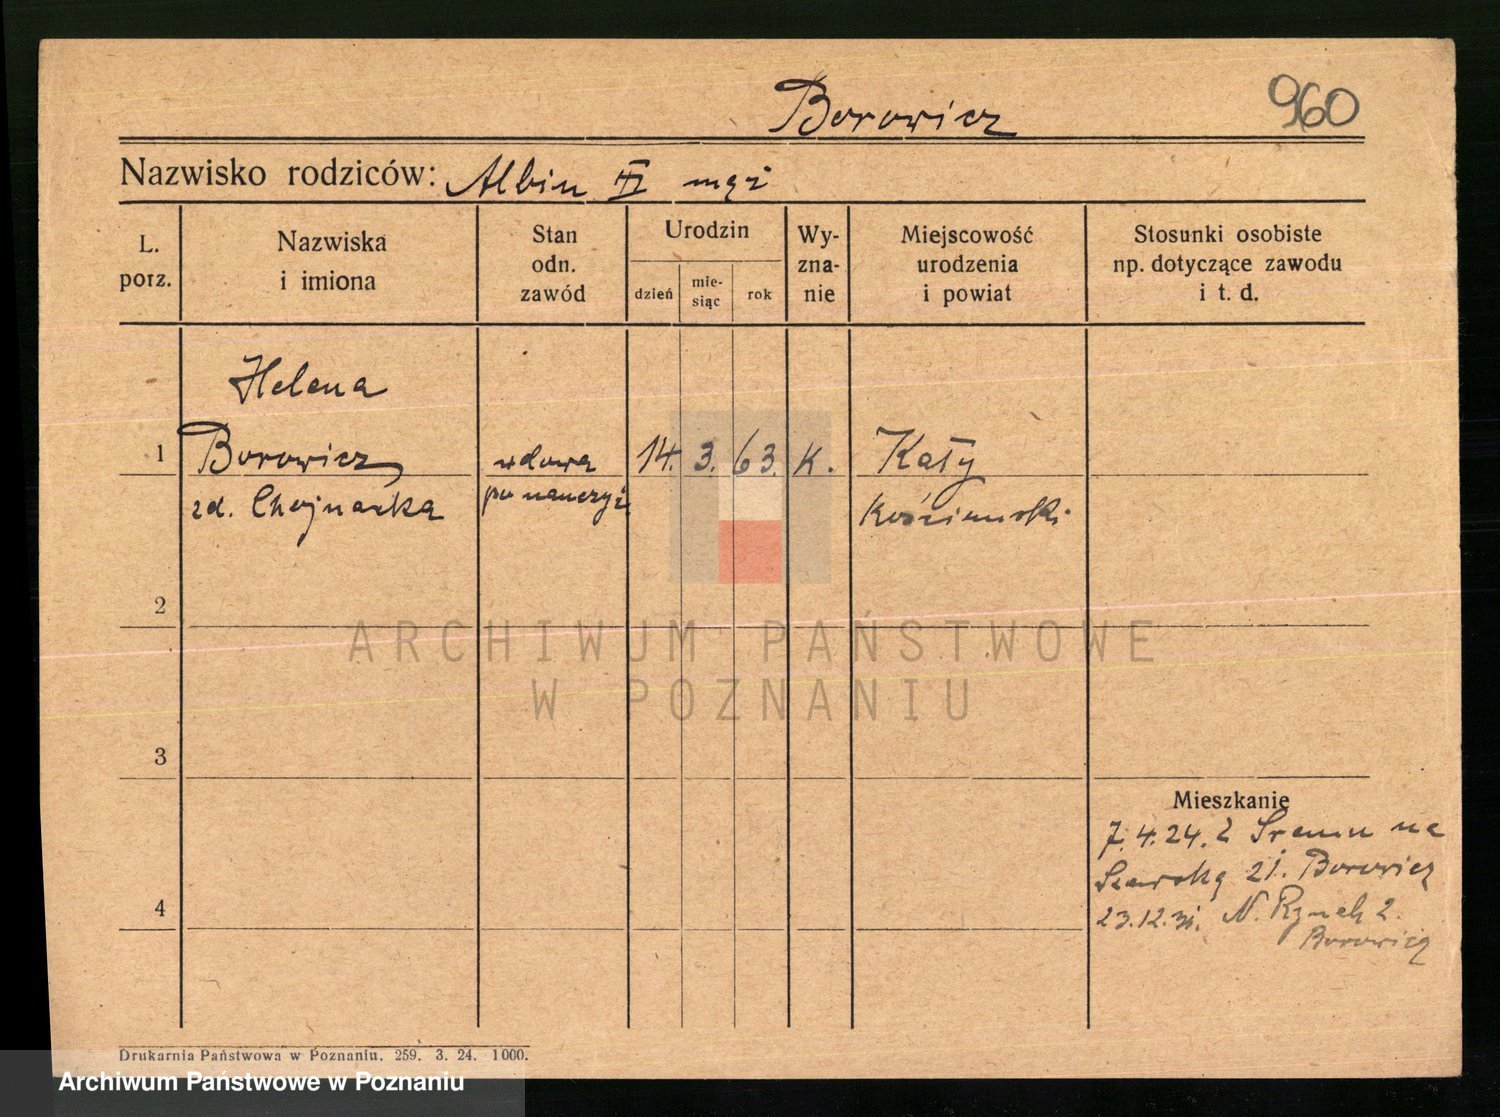 960
Borowicz
Nazwisko rodziców: Albin mąż
L. porz.
Nazwiska i imiona
Stan odn. zawód
Urodzin
dzień
mie-
siąc
rok
Wy-
zna-
nie
Miejscowość urodzenia i powiat
Stosunki osobiste np. dotyczące zawodu i t. d.
Helena
1 Borowicz wdowa 14. 3. 63. K. Kąty
zd. Chojnacka po nauczyc
2
3
4
ARCHIWUM PAŃSTWOWE
W POZNANIU
Mieszkanie
7.4.24. Z Śremu na
21. Borowicz
23.12.31. N. Rynek 2.
Borowicz
Drukarnia Państwowa w Poznaniu. 259. 3. 24. 1000.
Archiwum Państwowe w Poznaniu